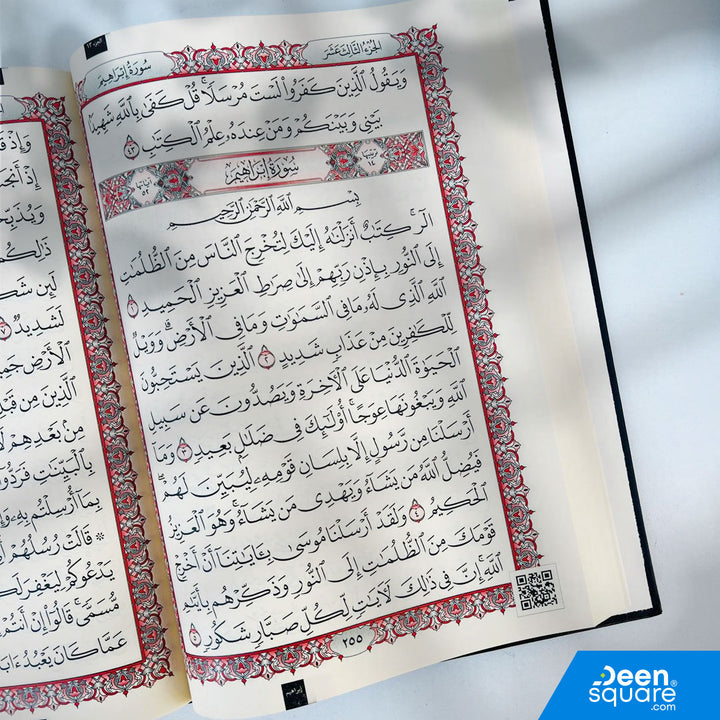 الجزء ١٣
سُورَةُ إِبْرَاهِيمَ
الجُزْءُ الثَّالِثَ عَشَرَ
وَيَقُولُ الَّذِينَ كَفَرُوا۟ لَسْتَ مُرْسَلًا ۚ قُلْ كَفَىٰ بِاللَّهِ شَهِيدًۢا
بَيْنِى وَبَيْنَكُمْ وَمَنْ عِندَهُۥ عِلْمُ الْكِتَٰبِ ٤٣
ترتيبها ١٤
سُورَةُ إِبْرَاهِيمَ
آياتها ٥٢
بِسْمِ اللَّهِ الرَّحْمَٰنِ الرَّحِيمِ
الٓر ۚ كِتَٰبٌ أَنزَلْنَٰهُ إِلَيْكَ لِتُخْرِجَ النَّاسَ مِنَ الظُّلُمَٰتِ
إِلَى النُّورِ بِإِذْنِ رَبِّهِمْ إِلَىٰ صِرَٰطِ الْعَزِيزِ الْحَمِيدِ ١
اللَّهِ الَّذِى لَهُۥ مَا فِى السَّمَٰوَٰتِ وَمَا فِى الْأَرْضِ ۗ وَوَيْلٌ
لِّلْكَٰفِرِينَ مِنْ عَذَابٍ شَدِيدٍ ٢ الَّذِينَ يَسْتَحِبُّونَ
الْحَيَوٰةَ الدُّنْيَا عَلَى الْءَاخِرَةِ وَيَصُدُّونَ عَن سَبِيلِ
اللَّهِ وَيَبْغُونَهَا عِوَجًا ۚ أُو۟لَٰٓئِكَ فِى ضَلَٰلٍۭ بَعِيدٍ ٣ وَمَآ
أَرْسَلْنَا مِن رَّسُولٍ إِلَّا بِلِسَانِ قَوْمِهِۦ لِيُبَيِّنَ لَهُمْ ۖ
فَيُضِلُّ اللَّهُ مَن يَشَآءُ وَيَهْدِى مَن يَشَآءُ ۚ وَهُوَ الْعَزِيزُ
الْحَكِيمُ ٤ وَلَقَدْ أَرْسَلْنَا مُوسَىٰ بِـَٔايَٰتِنَآ أَنْ أَخْرِجْ
قَوْمَكَ مِنَ الظُّلُمَٰتِ إِلَى النُّورِ وَذَكِّرْهُم بِأَيَّىٰمِ
اللَّهِ ۚ إِنَّ فِى ذَٰلِكَ لَءَايَٰتٍ لِّكُلِّ صَبَّارٍ شَكُورٍ ٥
٢٥٥
إبراهيم
وَإِذْ قَا
إِذْ أَنجَى
وَيُذَبِّحُ
ذَٰلِكُم
لَئِن شَكَ
لَشَدِيدٌ ٧
الْأَرْضِ جَمِي
الَّذِينَ مِن قَبْلِ
مِنۢ بَعْدِهِمْ لَا
بِالْبَيِّنَٰتِ فَرَدُّو
بِمَآ أُرْسِلْتُم بِهِۦ وَإِ
۞ قَالَتْ رُسُلُهُمْ أَ
يَدْعُوكُمْ لِيَغْفِرَ لَكُ
مُّسَمًّى ۚ قَالُوٓا۟ إِنْ أَنتُمْ
عَمَّا كَانَ يَعْبُدُ ءَابَا
Deen
square
.com